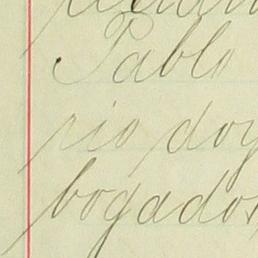 Pablo
rio doy
bogados